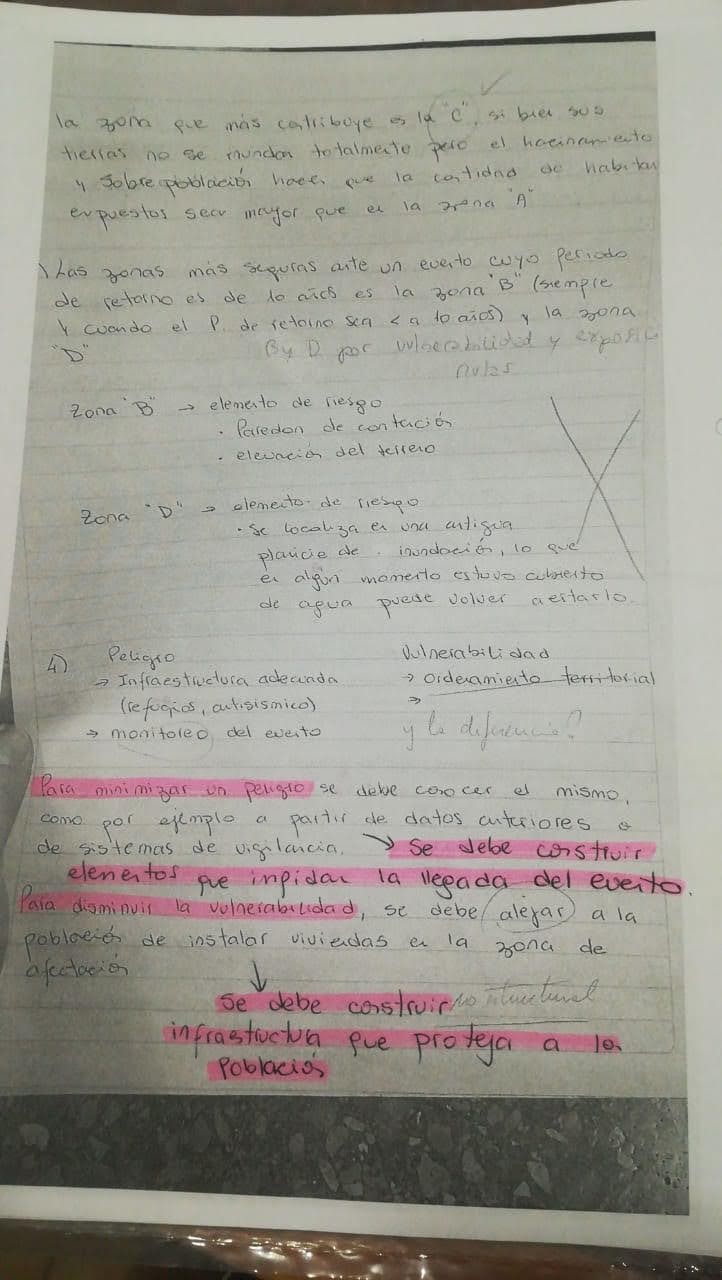 la zona que más contribuye es la "C", si bien sus
tierras no se inundan totalmente pero el hacinamiento
y sobrepoblación hacen que la cantidad de habitan
expuestos sea mayor que en la zona "A"
Las zonas más seguras ante un evento cuyo periodo
de retorno es de 10 años es la zona "B" (siempre
y cuando el P. de retorno sea < a 10 años) y la zona
"D"
B y D por vulnerabilidad y exposic
nulas
Zona "B" → elemento de riesgo
· Paredon de contención
· elevación del terreno
Zona "D" → elemento de riesgo
· Se localiza en una antigua
planicie de inundación, lo que
en algún momento estuvo cubierto
de agua puede volver a estarlo.
4) Peligro
→ Infraestructura adecuada
(refugios, antisísmico)
→ monitoreo del evento
Vulnerabilidad
→ Ordenamiento territorial
→
y la diferencia?
Para minimizar un peligro se debe conocer el mismo,
como por ejemplo a partir de datos anteriores o
de sistemas de vigilancia. → Se debe construir
elementos que impidan la llegada del evento.
Para disminuir la vulnerabilidad, se debe alejar a la
población de instalar viviendas en la zona de
afectación
↓
Se debe construir no structural
infrastructura que proteja a la
población